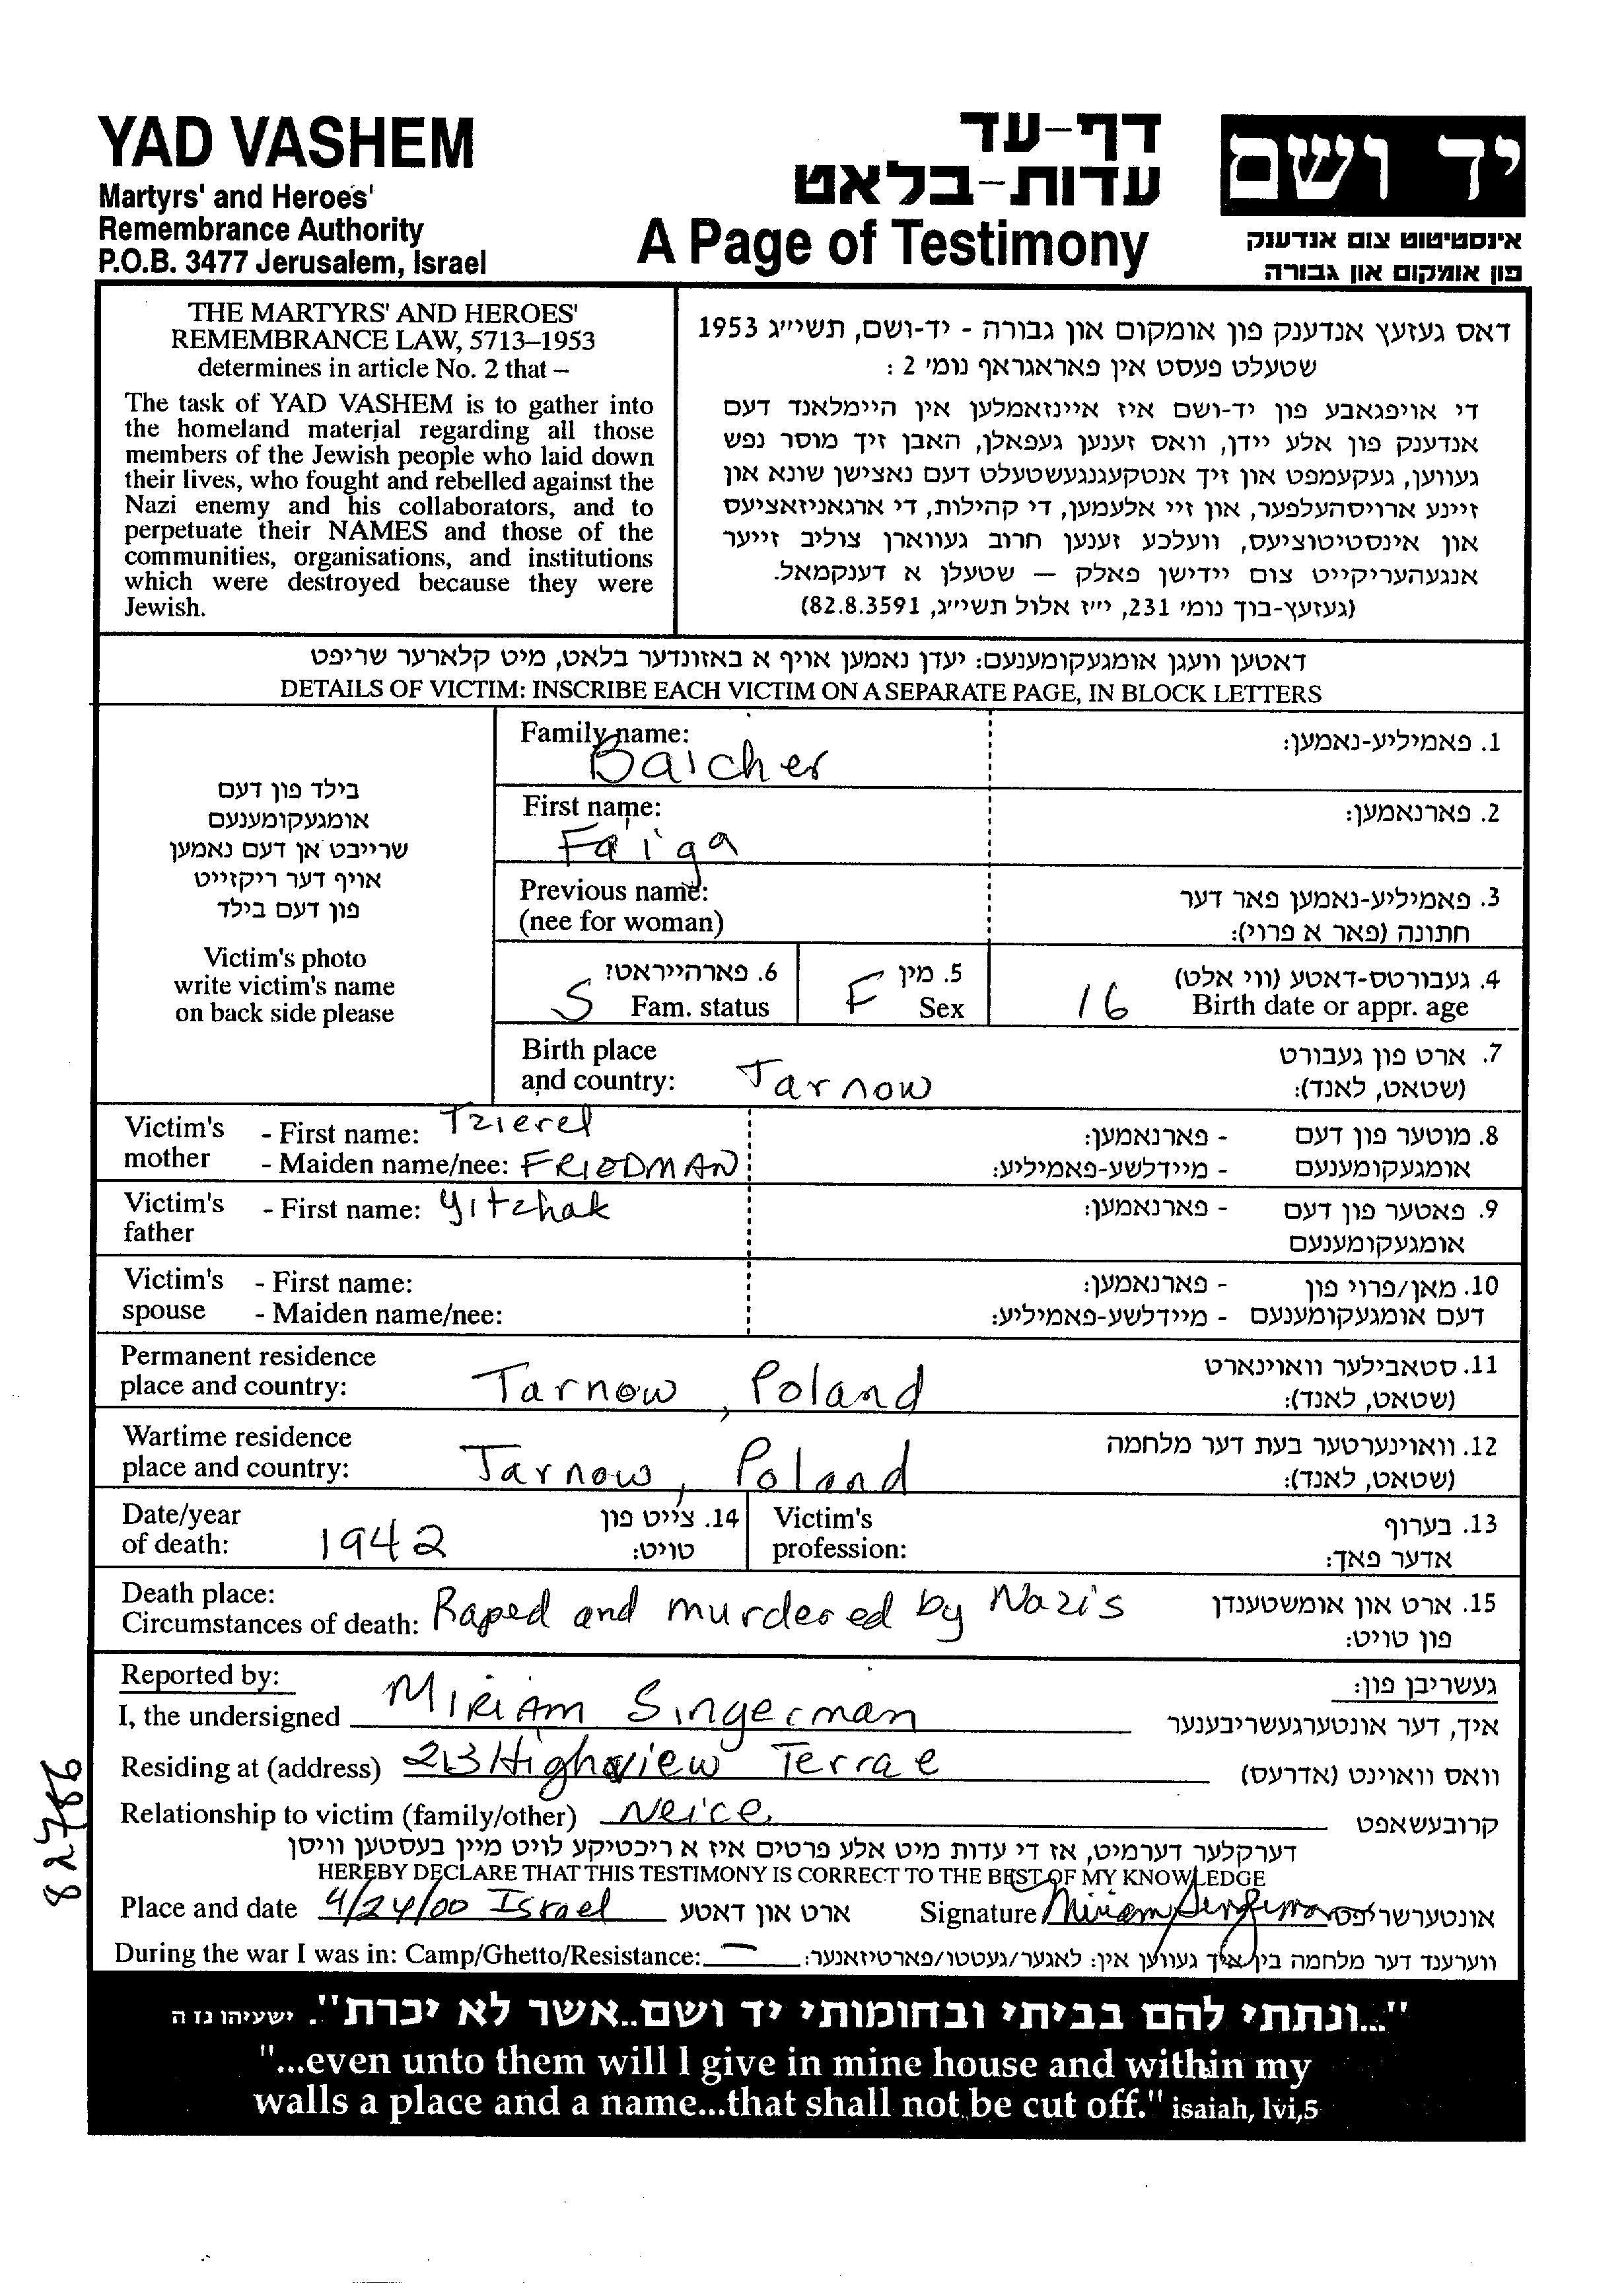 YAD VASHEM
Martyrs' and Heroes'
Remembrance Authority
P.O.B. 3477 Jerusalem, Israel
דף-עד
עדות-בלאט
A Page of Testimony
יד ושם
אינסטיטוט צום אנדענק
פון אומקום און גבורה
THE MARTYRS' AND HEROES'
REMEMBRANCE LAW, 5713–1953
determines in article No. 2 that –
The task of YAD VASHEM is to gather into
the homeland material regarding all those
members of the Jewish people who laid down
their lives, who fought and rebelled against the
Nazi enemy and his collaborators, and to
perpetuate their NAMES and those of the
communities, organisations, and institutions
which were destroyed because they were
Jewish.
דאס געזעץ אנדענק פון אומקום און גבורה - יד-ושם, תשי״ג 1953
שטעלט פעסט אין פאראגראף נומ׳ 2 :
די אויפגאבע פון יד-ושם איז איינזאמלען אין היימלאנד דעם
אנדענק פון אלע יידן, וואס זענען געפאלן, האבן זיך מוסר נפש
געווען, געקעמפט און זיך אנטקעגנגעשטעלט דעם נאצישן שונא און
זיינע ארויסהעלפער, און זיי אלעמען, די קהילות, די ארגאניזאציעס
און אינסטיטוציעס, וועלכע זענען חרוב געווארן צוליב זייער
אנגעהעריקייט צום יידישן פאלק — שטעלן א דענקמאל.
(געזעץ-בוך נומ׳ 231, י״ז אלול תשי״ג, 82.8.3591)
דאטען וועגן אומגעקומענעם: יעדן נאמען אויף א באזונדער בלאט, מיט קלארער שריפט
DETAILS OF VICTIM: INSCRIBE EACH VICTIM ON A SEPARATE PAGE, IN BLOCK LETTERS
בילד פון דעם
אומגעקומענעם
שרייבט אן דעם נאמען
אויף דער ריקזייט
פון דעם בילד
Victim's photo
write victim's name
on back side please
Family name: Baicher 1. פאמיליע-נאמען:
First name: Faiga 2. פארנאמען:
Previous name: 3. פאמיליע-נאמען פאר דער
(nee for woman) חתונה (פאר א פרוי):
S 6. פארהייראט? F 5. מין 16 4. געבורטס-דאטע (ווי אלט)
Fam. status Sex Birth date or appr. age
Birth place 7. ארט פון געבורט
and country: Tarnow (שטאט, לאנד):
Victim's - First name: Tzierel - פארנאמען: 8. מוטער פון דעם
mother - Maiden name/nee: FRIEDMAN - מיידלשע-פאמיליע: אומגעקומענעם
Victim's - First name: Yitzhak - פארנאמען: 9. פאטער פון דעם
father אומגעקומענעם
Victim's - First name: - פארנאמען: 10. מאן/פרוי פון
spouse - Maiden name/nee: - מיידלשע-פאמיליע: דעם אומגעקומענעם
Permanent residence 11. סטאבילער וואוינארט
place and country: Tarnow, Poland (שטאט, לאנד):
Wartime residence 12. וואוינערטער בעת דער מלחמה
place and country: Tarnow, Poland (שטאט, לאנד):
Date/year 14. צייט פון Victim's 13. בערוף
of death: 1942 טויט: profession: אדער פאך:
Death place: 15. ארט און אומשטענדן
Circumstances of death: Raped and murdered by Nazi's פון טויט:
Reported by: געשריבן פון:
I, the undersigned MIRIAM Singerman איך, דער אונטערגעשריבענער
Residing at (address) 213 Highview Terrae וואס וואוינט (אדרעס)
Relationship to victim (family/other) Neice קרובעשאפט
דערקלער דערמיט, אז די עדות מיט אלע פרטים איז א ריכטיקע לויט מיין בעסטען וויסן
HEREBY DECLARE THAT THIS TESTIMONY IS CORRECT TO THE BEST OF MY KNOWLEDGE
Place and date 4/24/00 Israel ארט און דאטע Signature Miriam Singerman אונטערשריפט
During the war I was in: Camp/Ghetto/Resistance: — ווערענד דער מלחמה בין איך געווען אין: לאגער/געטטו/פארטיזאנער:
"...ונתתי להם בביתי ובחומותי יד ושם..אשר לא יכרת". ישעיהו נז ה
"...even unto them will I give in mine house and within my
walls a place and a name...that shall not be cut off." isaiah, lvi,5
82786